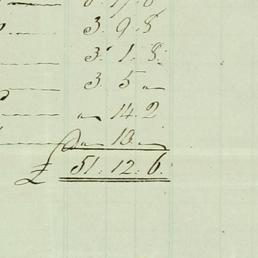 3. 9. 8
3. 1. 8.
3. 5 „
„ 14. 2
„ 18 „
£ 51. 12. 6.